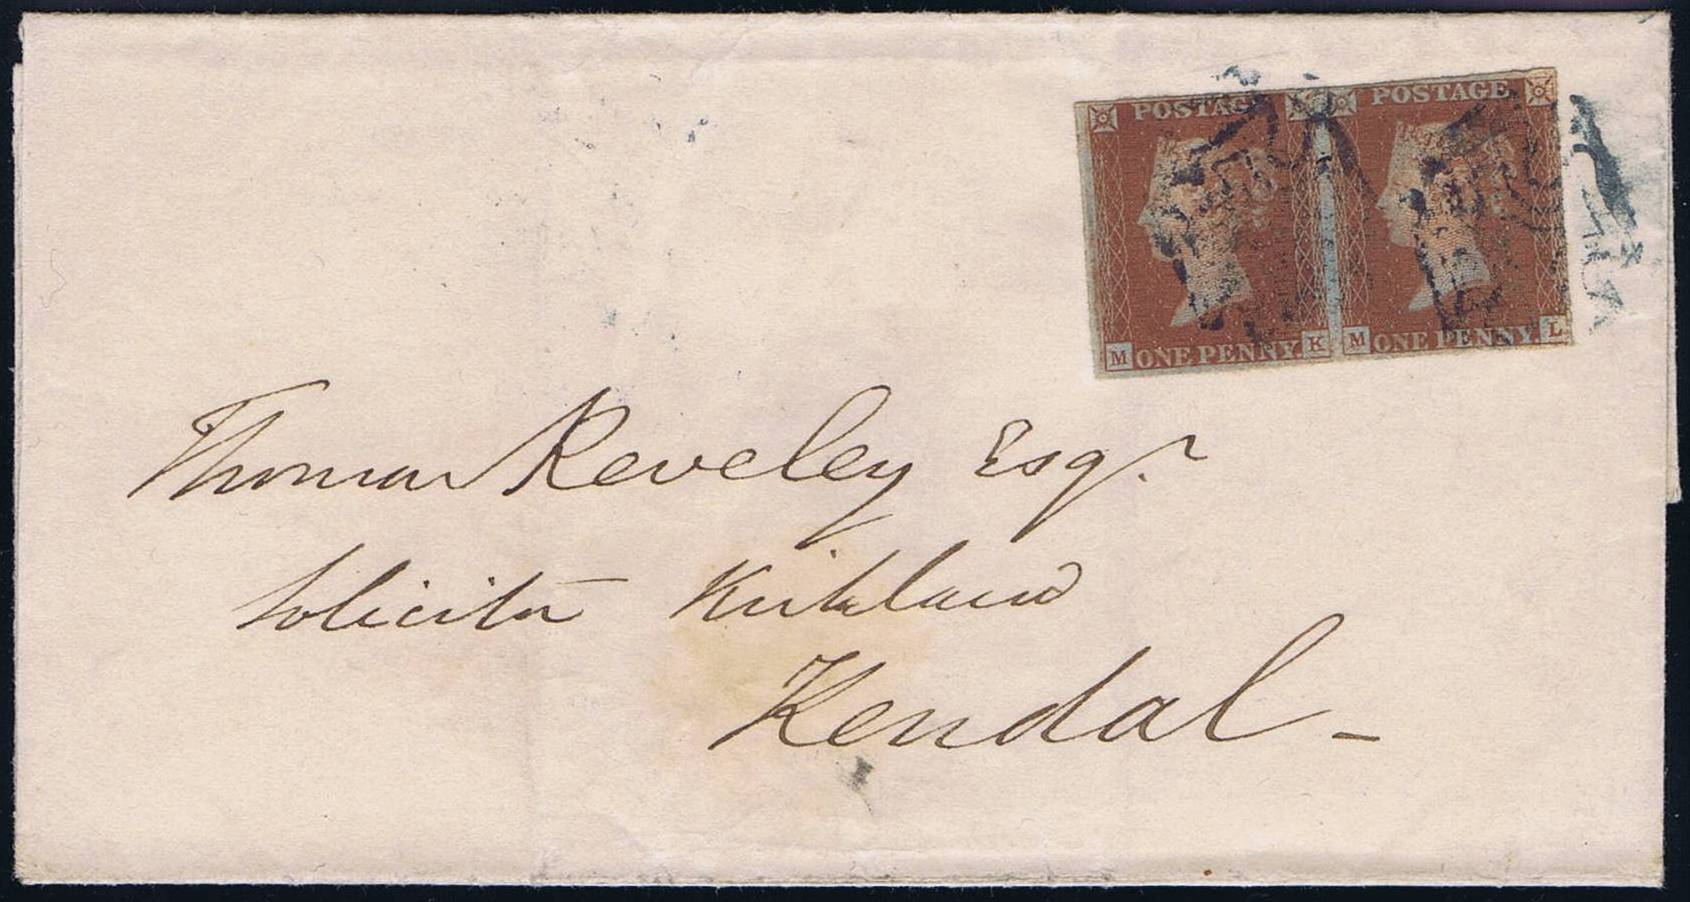 POSTAGE POSTAGE
M ONE PENNY K M ONE PENNY L
Thomas Reveley Esqr
Solicitor Kirkland
Kendal -